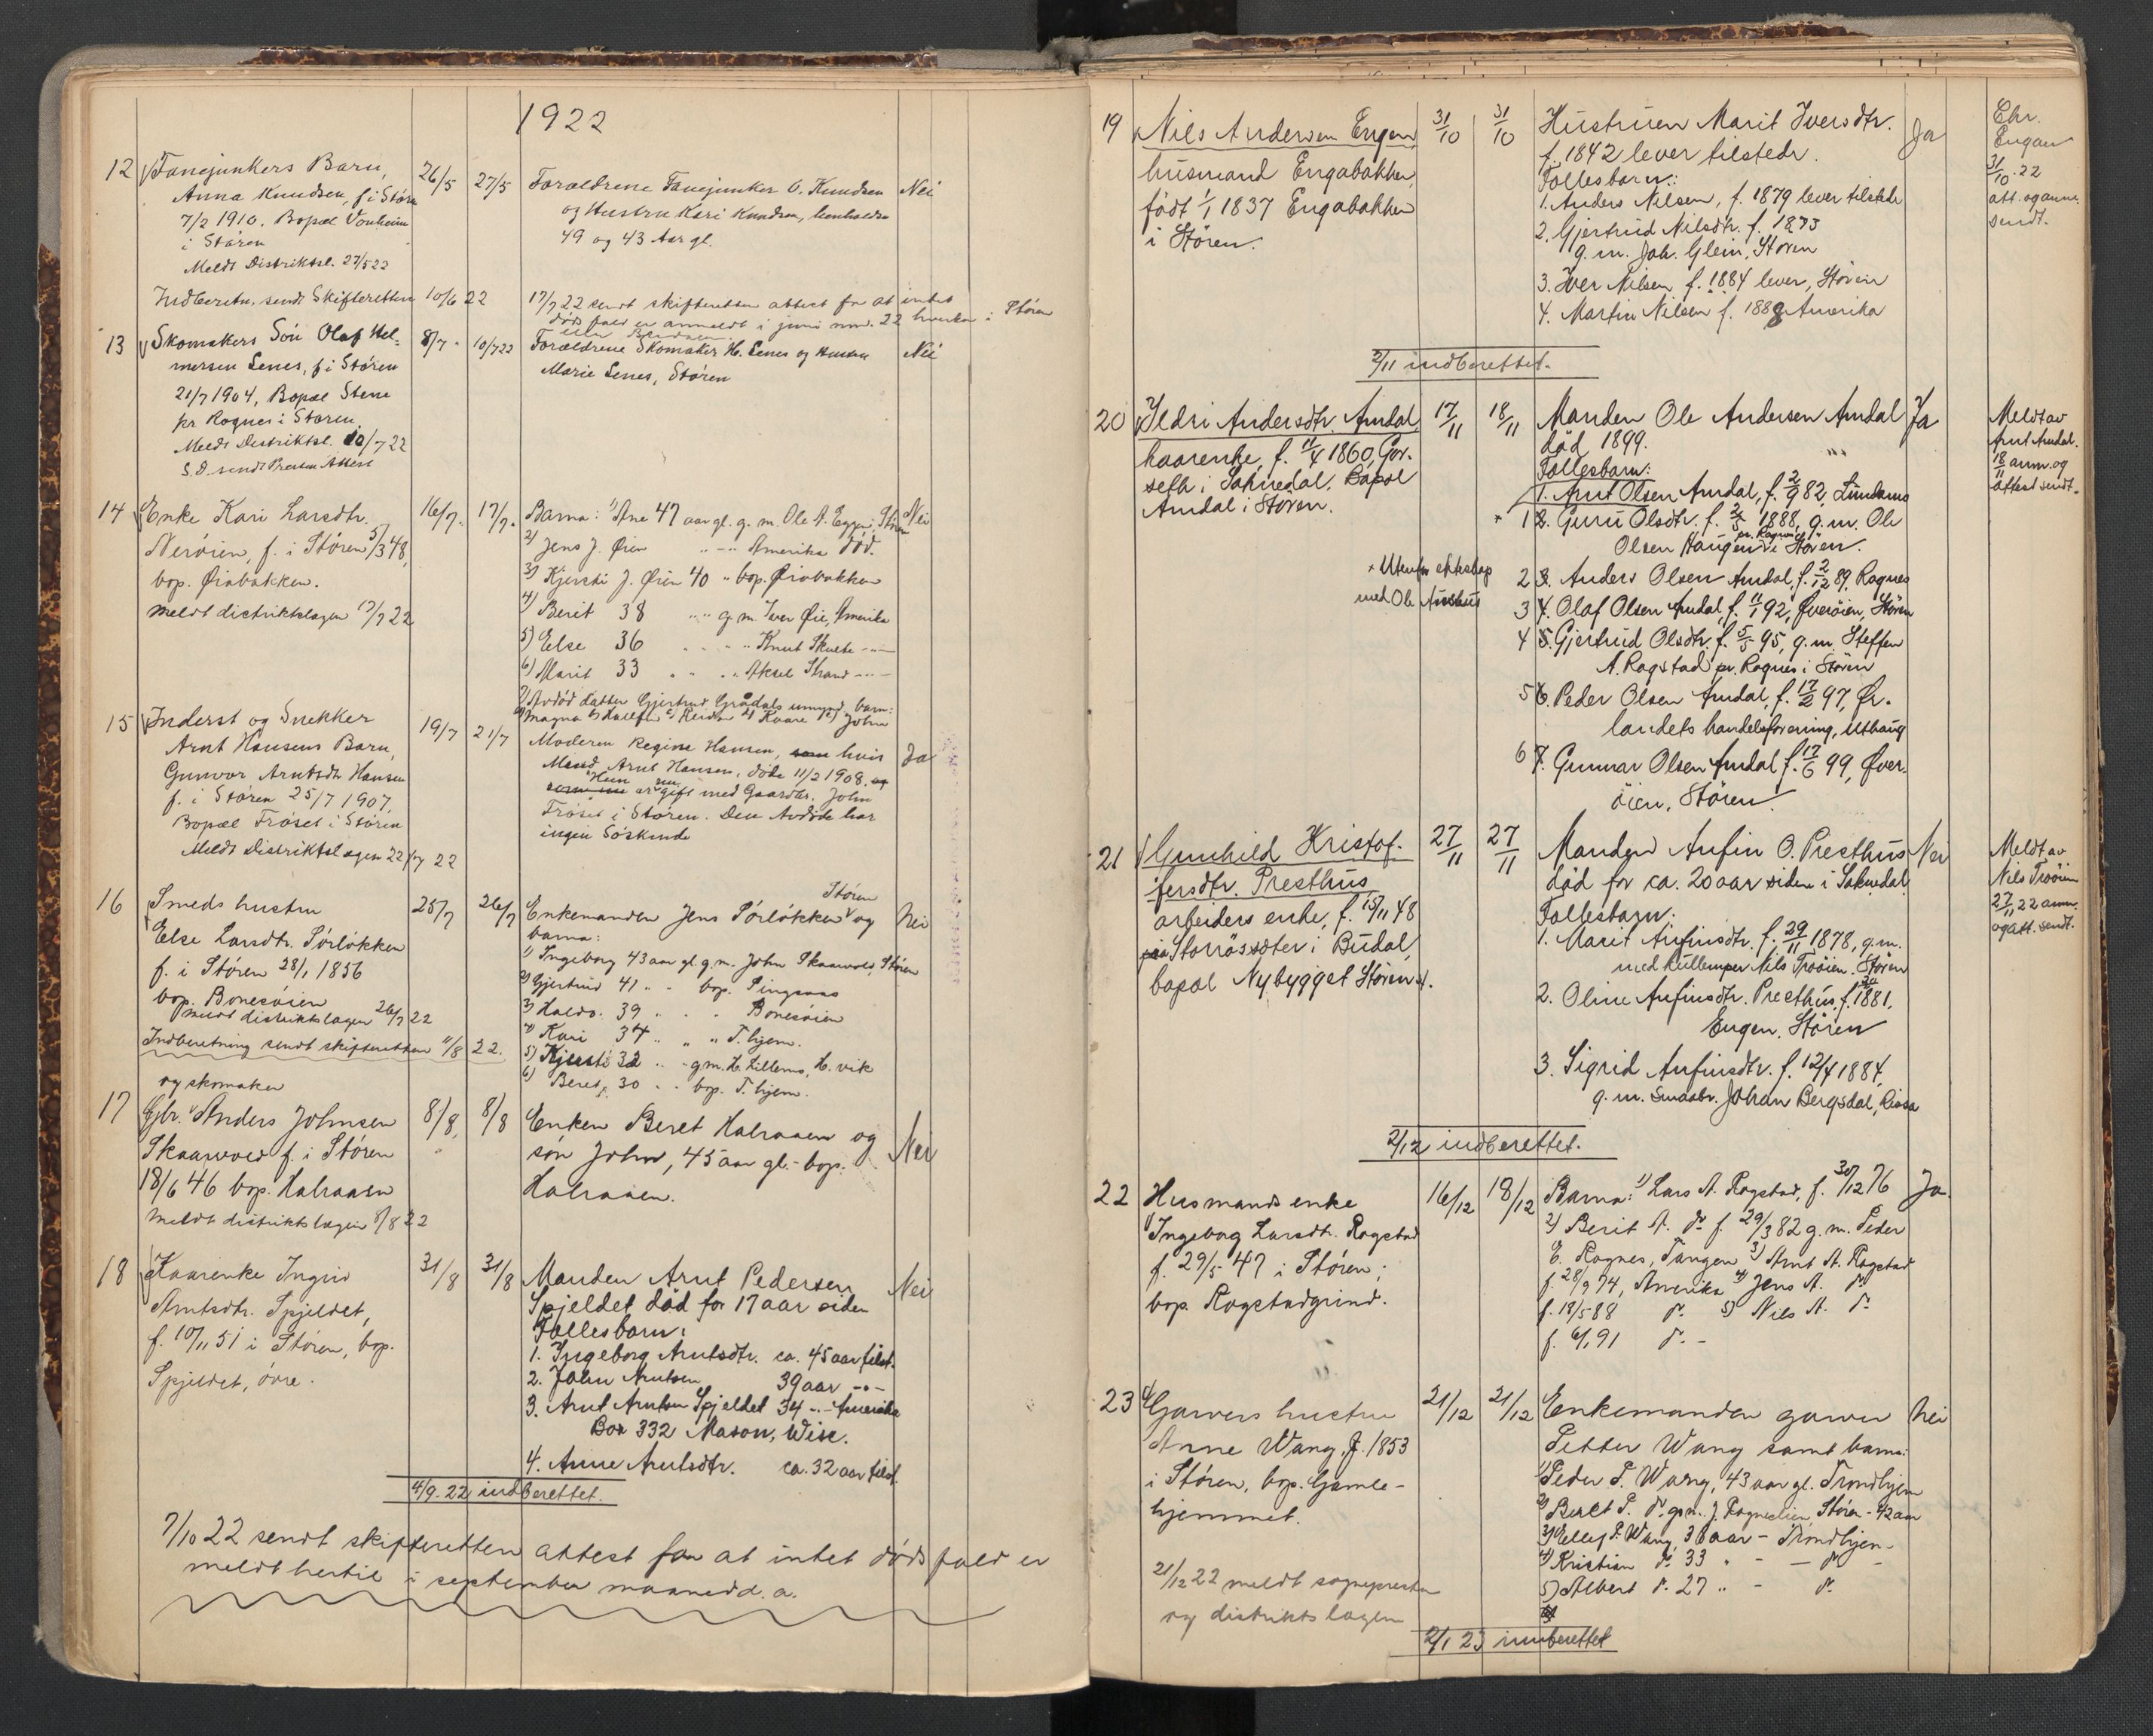 1922
12 Fanejunkers Barn, 26/5 27/5 Forældrene Fanejunker O. Knudsen Nei
Anna Knudsen, f i Støren og Hustru Kari Knudsen, henholdsv
7/2 1910. Bopæl Vonheim 49 og 43 Aar gl.
i Støren
Meldt Distriktsl. 27/5 22
Indberetn. sendt Skifteretten 10/6 22 17/7 22 sendt skifteretten attest for at intet
dødsfald er anmeldt i juni mnd. 22 hverken i Støren
eller Budalen
13 Skomakers Søn Olaf Hel- 8/7 10/7 22 Forældrene Skomaker H. Lenes og Hustru Nei
mersen Lenes, f i Støren Marie Lenes, Støren
21/7 1904, Bopæl Stene
pr Rognes i Støren
Meldt Distriktsl. 10/7 22
S. D. sendt Presten Attest
14 Enke Kari Larsdtr. 16/7. 17/7. Barna: 1) Ane 47 aar gl. g. m. Ole A. Eggen, Støren Nei
Nerøien, f. i Støren 5/3 48, 2) Jens J. Øien " - " Amerika død.
bop. Øiabakken. 3) Kjersti J. Øien 40 " bop. Øiabakken
meldt distriktslægen 17/7 22 4) Berit 38 " " g. m. Iver Øie, Amerika
5) Else 36 " " Knut Skulte - " -
6) Marit 33 " " Aksel Strand - " -
7) Avdød datter Gjertrud Grødals umynd. barn:
a) Magna b) c) Reidar d) Kaare e) John
15 Inderst og Snekker 19/7 21/7 Moderen Regine Hansen, som hvis Ja
Arnt Hansens Barn, Mand, Arnt Hansen, døde 11/2 1908. og
Gunvor Arntsdtr Hansen Hun er nu gift med Gaardbr. John
f. i Støren 25/7 1907. Frøset i Støren. Den Avdøde har
Bopæl Frøset i Støren ingen Søskende
Meldt Distriktslægen 22/7 22
16 Smeds hustru 25/7 26/7 Enkemanden Jens Pørløkken Støren og Nei
Else Larsdtr. Pørløkken barna:
f. i Støren 28/1 1856 1) Ingeborg 43 aar gl. g. m. John Skaarvold, Støren
bop. Bonesøien 2) Gjertrud 41 " " bop. Singsaas
meldt distriktslægen 26/7 22 3) Haldo. 39 " " Bonesøien
Indberetning sendt skifteretten 11/8 22. 4) Kari 34 " " " T.hjem.
5) Kjersti 32 " " g m. H. Lillemo, H. vik
6) Beret, 30 " " bop. T. hjem.
og skomaker
17 Gbr. Anders Johnsen 8/8. 8/8 Enken Beret Halraaen og Nei
Skaarvold f. i Støren søn John, 45 aar gl. - bop.
18/6 46 bop. Halraaen Halraaen.
meldt distriktslægen 8/8 22
18 Kaarenke Ingrid 31/8 31/8 Manden Arnt Pedersen Nei
Arntsdtr. Spjeldet, Spjeldet død for 17 aar siden
f. 10/11 51 i Støren, bop. Fællesbarn:
Spjeldet, øvre. 1. Ingeborg Arntsdtr. ca. 45 aar tilst.
2. John Arntsen 39 aar - " -
3. Arnt Arntsen Spjeldet 34 - " - Amerika
Box 332 Mason, Wisc.
4. Anne Arntsdtr. ca. 32 aar tilst.
4/9. 22 indberettet.
7/10 22 sendt skifteretten attest for at intet dødsfald er
meldt hertil i september maaned d. a.
19 Nils Andersen Engen, 31/10 31/10 Hustruen Marit Iversdtr. Ja Chr.
husmand Engabakken, f. 1842 lever tilstede. Engan
født 1/1 1837 Engabakken Fællesbarn: 31/10. 22
i Støren. 1. Anders Nilsen, f. 1879 lever tilstede att. og anm.
2. Gjertrud Nilsdtr. f. 1873 sendt.
g. m. Joh. Glein, Støren
3. Iver Nilsen f. 1884 lever, Støren
4. Martin Nilsen f. 1888 Amerika
2/11 indberettet.
20 Ildri Andersdtr. Amdal, 17/11 18/11 Manden Ole Andersen Amdal Ja Meldt av
kaarenke, f. 11/4 1860, Gor- død 1899. Arnt Amdal.
seth i Soknedal. Bopæl Fællesbarn: 18/11 anm. og
Amdal i Støren. 1. Arnt Olsen Amdal, f. 2/9 82, Lundamo attest sendt.
* 1 2. Guru Olsdtr. f. 2/5 1888, g. m. Ole
Olsen Haugen pr. Rognes i Støren.
* Utenfor ekteskap 2 3. Anders Olsen Amdal, f. 2/12 89, Rognes
med Ole 3 4. Olaf Olsen Amdal, f. 11/1 92, Øverøien, Støren
4 5. Gjertrud Olsdtr. f. 5/5 95, g. m. Steffen
A. Rogstad pr. Rognes i Støren
5 6. Peder Olsen Amdal, f. 17/2 97, Ør-
landets handelsforening, Uthaug
6 7. Gunnar Olsen Amdal f. 17/6 99, Øver-
øien, Støren.
21 Gunhild Kristof- 27/11 27/11 Manden Anfin O. Presthus Nei Meldt av
fersdtr. Presthus død for ca. 20 aar siden i Soknedal Nils Trøøien
arbeiders enke, f. 15/11 48 Fællesbarn: 27/11 22 anm.
paa Storrøssæter i Budal, 1. Marit Anfinsdtr. f. 29/11 1878, g. m. og att. sendt.
bopæl Nybygget Støren. med Nils Trøøien. Støren
2. Oline Anfinsdtr. Presthus, f. 1881,
Engen, Støren
3. Sigrid Anfinsdtr. f. 12/4 1884,
g. m. Smaabr. Johan Bergsdal, Rissa
2/12 indberettet.
22 Husmands enke 16/12 18/12 Barna: 1) Lars A. Rogstad, f. 30/12 76 Ja.
Ingeborg Larsdtr. Rogstad 2) Berit A. do f. 29/3 82 g. m. Peder
f. 29/5 47 i Støren; E. Rognes, Tangen 3) Arnt A. Rogstad
bop. Rogstadgrind. f. 28/9 74, Amerika 4) Jens A. do
f. 18/5 88 do. 5) Nils A. do
f. 6/1 91 do. -
23 Garvers hustru 21/12 21/12 Enkemanden garver Nei
Anne Wang, f. 1853 Petter Wang samt barna:
i Støren, bop. Gamle- 1) Peder P. Wang, 43 aar gl. Trondhjem
hjemmet. 2) Beret P. do. g. m. J. Rogneslien, Støren - 42 aar
3) Ellef P. Wang, 36 aar - Trondhjem -
4) Kristian do. 33 " - - do -
21/12 22 meldt sognepresten 5) Albert do. 27 " - do.
og distriktslægen
2/1 23 innberettet